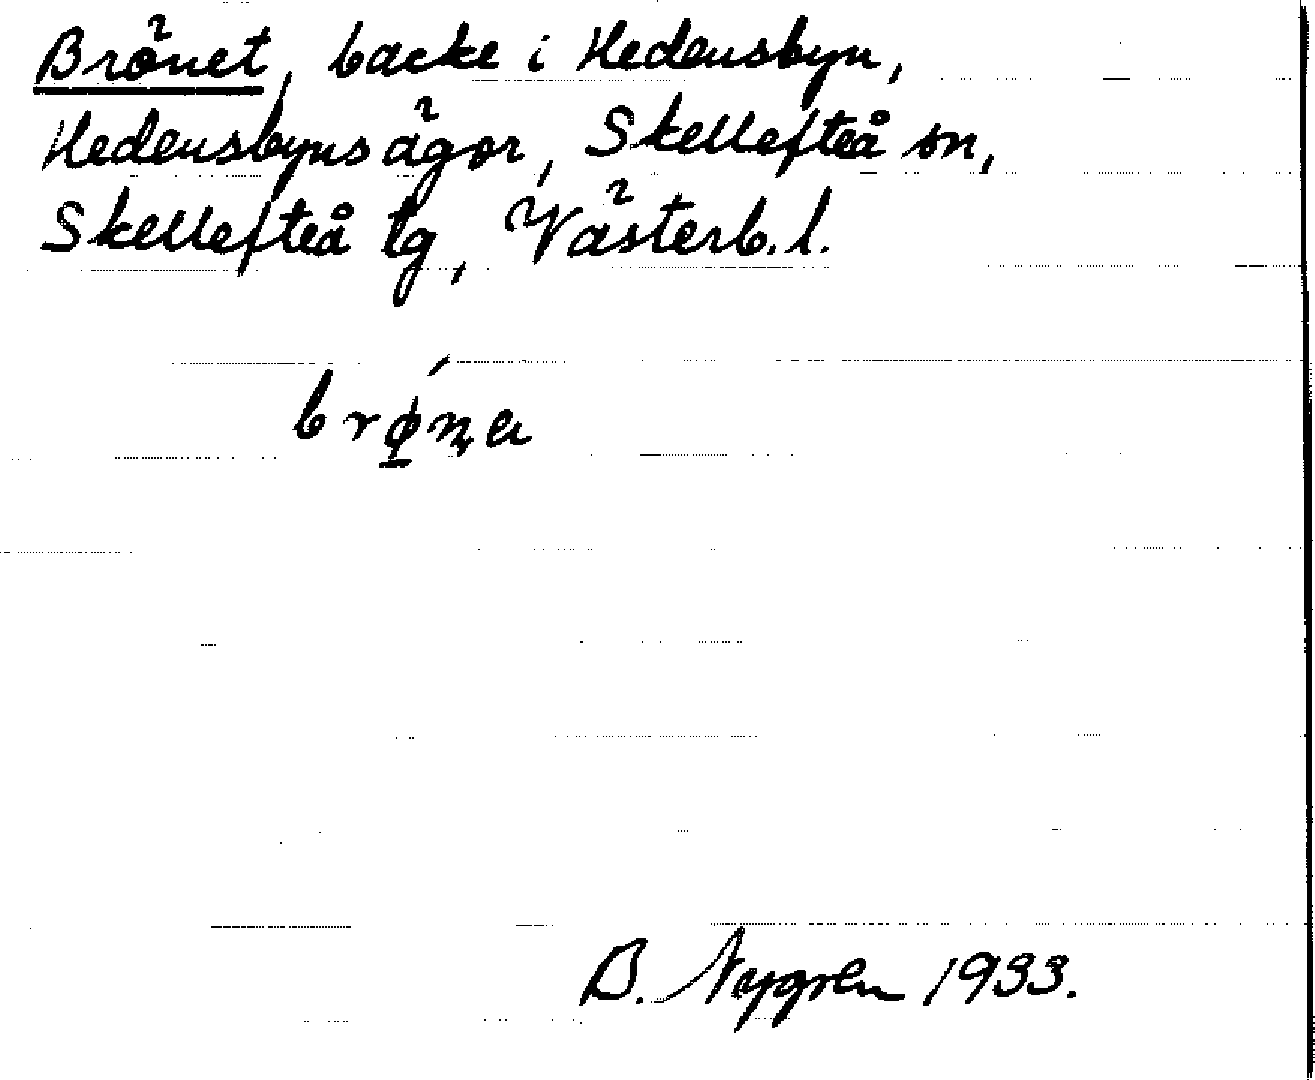 Brönet, backe i Hedensbyn,
Hedensbyns ägor, Skellefteå sn,
Skellefteå tg, Västerb. l.
brǿ̱n̨a
B. Nygren 1933.